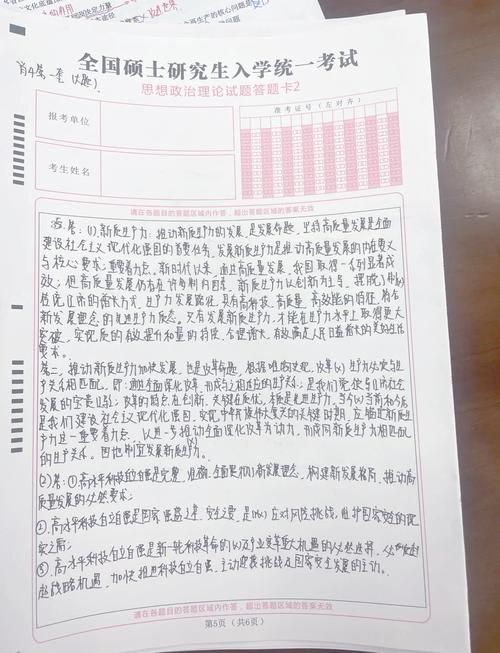 全国硕士研究生入学统一考试
肖4第一套
思想政治理论试题答题卡2
报考单位
考生姓名
准考证号（左对齐）
请在各题目的答题区域内作答，超出答题区域的答案无效
答：(1).新质生产力：推动新质生产力的发展，是发展命题，坚持高质量发展是全面
建设社会主义现代化强国的首要任务，发展新质生产力是推动高质量发展的内在要求
与核心要求，重要着力点，新时代以来，
效，但高质量发展仍有在许多制约因素，新质生产力以创新为主导，摆脱了
传统的增长方式，生产力发展路径，具有高科技，高质量，高效能的特征，符合
新发展理念的先进生产力质态，只有发展新质生产力，才能在生产力水平上取得更大
突破，实现质的有效提升和量的持续，合理增长，有效满足人民日益增长的美好生活
要求。
第二，推动新质生产力加快发展，也是改革命题，根据唯物史观，生产力必定与生
产关系相匹配，即：通过全面深化改革，形成与之相适应的生产关系；是我们
发展的宝贵经验；改革的特点在创新，关键在质优，本质是先进生产力，当今
是我们建设社会主义现代化强国，实现中华民族伟大复兴的关键时期，
产力这一重要着力点，以进一步推动全面深化改革为动力，形成同新质生产力相匹配
的生产关系。因地制宜发展新质生产力。
(2)答：①高水平科技自立自强是完整，准确，全面贯彻新发展理念，构建新发展格局，推动高
质量发展的必然要求；
②.高水平科技自立自强是国家强盛之基，安全之要，是应对风险挑战，维护国家安全的现
实之需；
③.高水平科技自立自强是新一轮科技革命及产业变革重大机遇的必然选择，
战略机遇，加快推进科技自立自强，主动迎接挑战及国家安全发展的主动。
请在各题目的答题区域内作答，超出答题区域的答案无效
第5页（共6页）